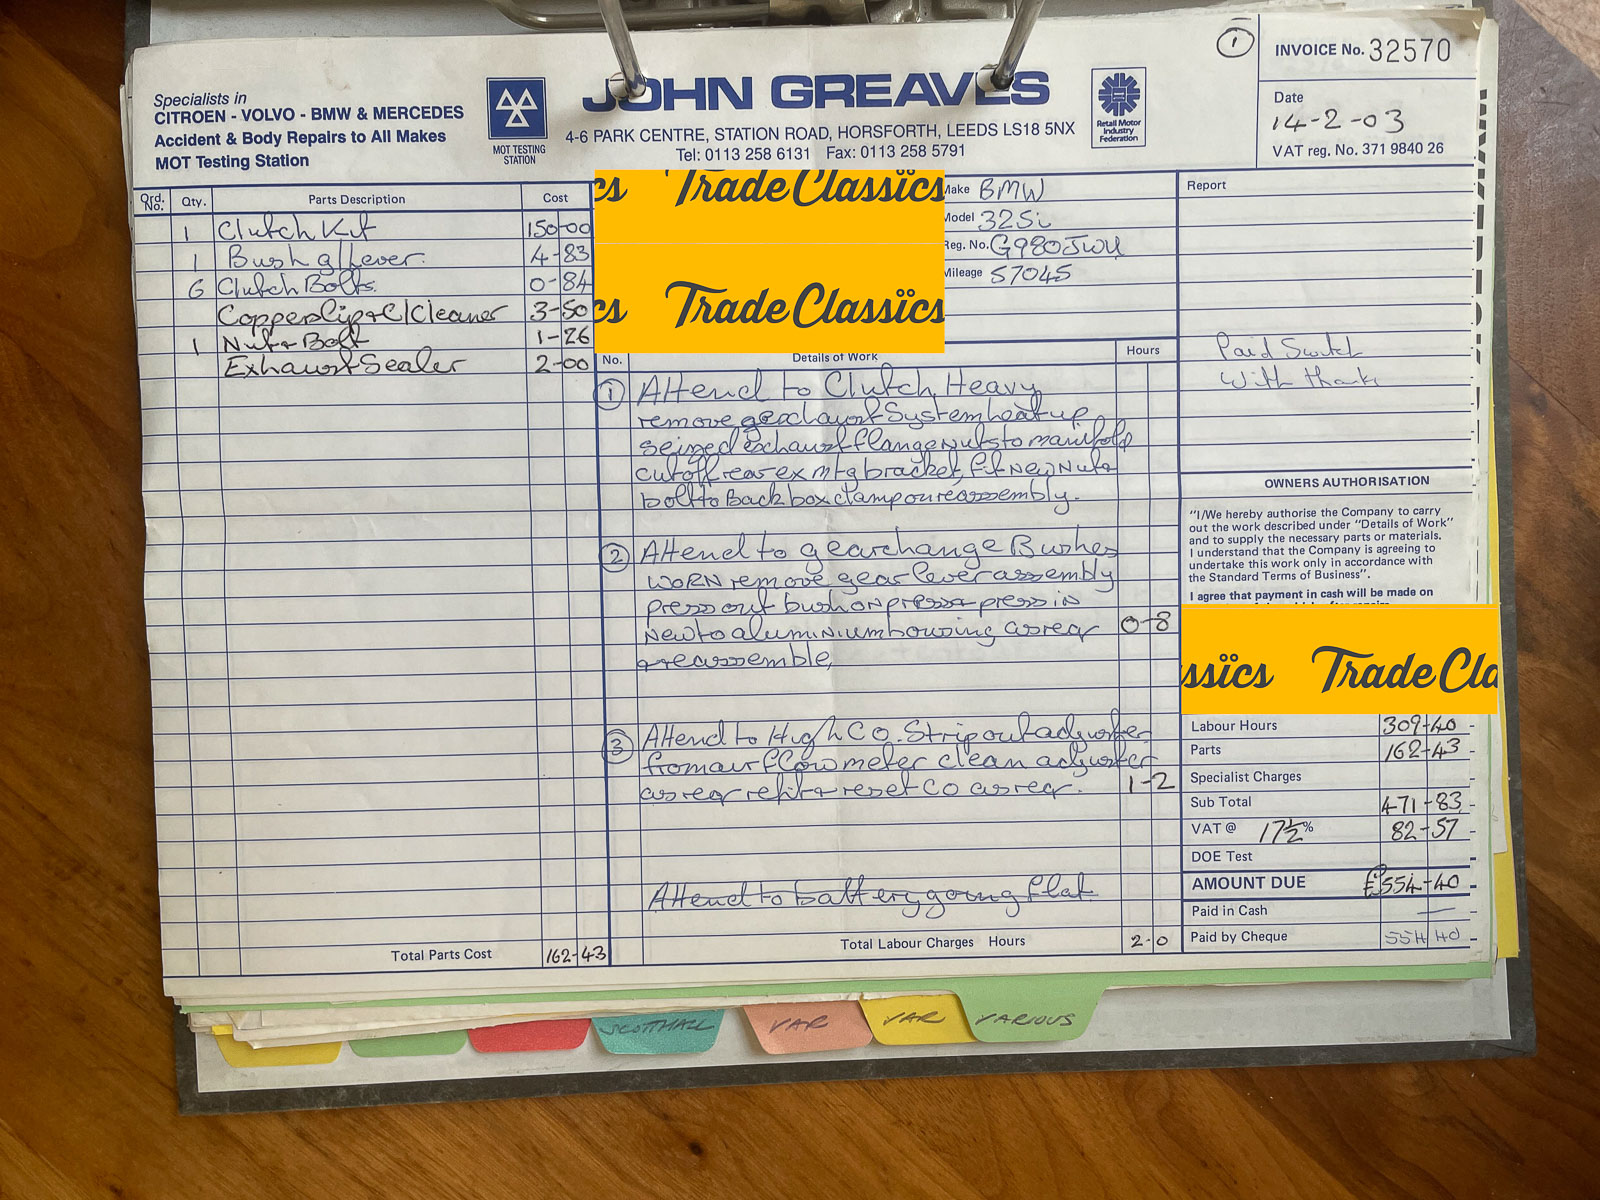 Specialists in
CITROEN - VOLVO - BMW & MERCEDES
Accident & Body Repairs to All Makes
MOT Testing Station
MOT TESTING
STATION
JOHN GREAVES
4-6 PARK CENTRE, STATION ROAD, HORSFORTH, LEEDS LS18 5NX
Tel: 0113 258 6131 Fax: 0113 258 5791
Retail Motor
Industry
Federation
1
INVOICE No. 32570
Date
14-2-03
VAT reg. No. 371 9840 26
Ord. No. Qty. Parts Description Cost
1 Clutch Kit 150-00
1 Bush g/Lever. 4-83
6 Clutch Bolts. 0-84
Copperslip & C/Cleaner 3-50
1 Nut & Bolt 1-26
Exhaust Sealer 2-00
Total Parts Cost 162-43
cs TradeClassïcs
cs TradeClassïcs
Make BMW
Model 325i
Reg. No. G980JWU
Mileage 57045
No. Details of Work Hours
1 Attend to Clutch Heavy
remove exhaust System heat up
seized exhaust flange Nuts to manifold
cut off rear ex mtg bracket, fit New Nut &
bolt to Back box clamp on reassembly.
2 Attend to gearchange Bushes
WORN remove gear lever assembly
press out bush on press & press in
New to aluminium housing as req
& reassemble, 0-8
3 Attend to High Co. Strip out adjuster
from air flow meter clean adjuster
as req refit & reset Co as req. 1-2
Attend to battery going flat
Total Labour Charges Hours 2-0
Report
Paid Switch
With thanks
OWNERS AUTHORISATION
"I/We hereby authorise the Company to carry
out the work described under "Details of Work"
and to supply the necessary parts or materials.
I understand that the Company is agreeing to
undertake this work only in accordance with
the Standard Terms of Business".
I agree that payment in cash will be made on
ssïcs TradeCla
Labour Hours 309-40
Parts 162-43
Specialist Charges
Sub Total 471-83
VAT @ 17½ % 82-57
DOE Test
AMOUNT DUE £554-40
Paid in Cash —
Paid by Cheque 554 40
SCOTTHALL
VAR
VAR
VARIOUS